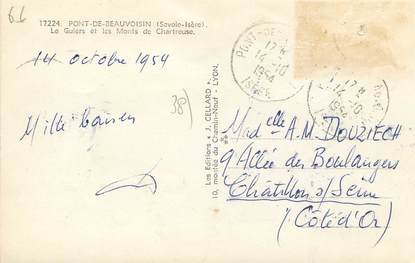 6L
17224. PONT-DE-BEAUVOISIN (Savoie-Isère).
Le Guiers et les Monts de Chartreuse.
14 octobre 1954
38)
Mille baisers
Les Editions "J. CELLARD"
10, montée du Chemin-Neuf - LYON.
PONT-DE-
17 H
14-10
1954
ISÈRE
17 H
14-10
1954
Madelle A.M. DOUZIECH
9 Allée des Boulangers
Châtillon s/ Seine
(Côte d'Or)